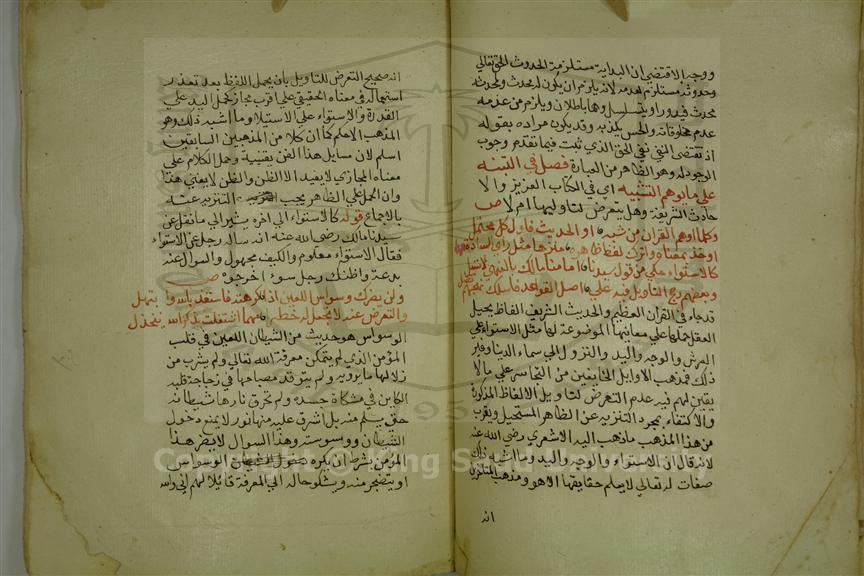 ووجه الاقتضى ان البداية مستلزمة الحدوث الحق تعالى
وحدوثه مستلزم لعدمه لانه يلزم ان يكون له محدث ولمحدثه
محدث فيدور او يتسلسل وهما باطلان ويلزم من عدمه
عدم مخلوقاته والحس يكذبه وقد يكون مراده بقوله
اذ تقتضى التي نفي الحق الذي ثبت فيما تقدم وجوب
الوجود له وهو الظاهر من العبارة فصل في التنبيه
على ما يوهم التشبيه اي في الكتاب العزيز والا
حاديث الشريفة وهل يتعرض لتاويلها ام لا ص
وكلما اوهم القران من شبه او الحديث فاول كل محتمل
او خذ بمعناه واترك لفظ ظاهره منزها مثل راي السادة
كالاستواء حكي من قول سيدنا امامنا مالك بالنهي
وبعضهم رجح التاويل فيه على اصل القواعد فاسلك نهجهم
قد جاء في القران العظيم والحديث الشريف الفاظ يحيل
العقل حملها على معانيها الموضوعة لها مثل الاستواء على
العرش والوجه واليد والنزول الى سماء الدنيا وغير
ذلك فمذهب الاوايل الخايفين من التجاسر على مالا
يقين لهم فيه عدم التعرض لتاويل الالفاظ المذكورة
والاكتفاء بمجرد التنزيه عن الظاهر المستحيل ويقرب
من هذا المذهب ما ذهب اليه الاشعري رضي الله عنه
لانه قال ان الاستواء والوجه واليد وما اشبه ذلك
صفات له تعالى لا يعلم حقايقها الا هو ومذهب المتاخرين
انه
انه صحيح التعرض للتاويل بان يحمل اللفظ بعد تعذر
استعماله في معناه الحقيقي على اقرب مجاز كحمل اليد على
القدرة والاستواء على الاستيلا وما اشبه ذلك وهو
المذهب الاعلم كما ان كلا من المذهبين السابقين
اسلم لان مسايل هذا الفن يقينية وحمل الكلام على
معناه المجازي لا يفيد الا الظن والظن لا يغني هنا
وان الحمل على الظاهر يجب التنزيه عنه
بالاجماع قوله كالاستواء الى اخره يشير الى ما نقل عن
سيدنا مالك رضي الله عنه انه ساله رجل عن الاستواء
فقال الاستواء معلوم والكيف مجهول والسوال عنه
بدعة واظنك رجل سوء اخرجوه ص
ولن يضرك وسواس اللعين اذا كرهته فاستعذ بالله وابتهل
والتعرض عنه لا تجعل له خطرا مهما اشتغلت بذكر الله ينخذل
الوسواس هو حديث من الشيطان اللعين في قلب
المؤمن الذي لم يتمكن معرفة الله تعالى ولم يشرب من
زلالها ما يرويه ولم يتوقد مصباحها في زجاجة قلبه
الكاين في مشكاة جسده ولم تحرق نارها شيطانه
حتى يسلم منه بل اشرق عليه منها نور لا يمنع دخول
الشيطان ووسوسته وهذا السوال لا يضر هذا
المؤمن بشرط ان يكره حصول الوسواس
او يتضجر منه ويشكو حاله الى المعرفة قايلا لهم اني واسه
Copyright © King Saud University
1957